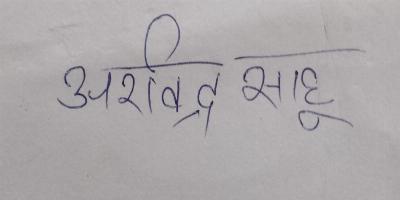 अरविंद्र साहू